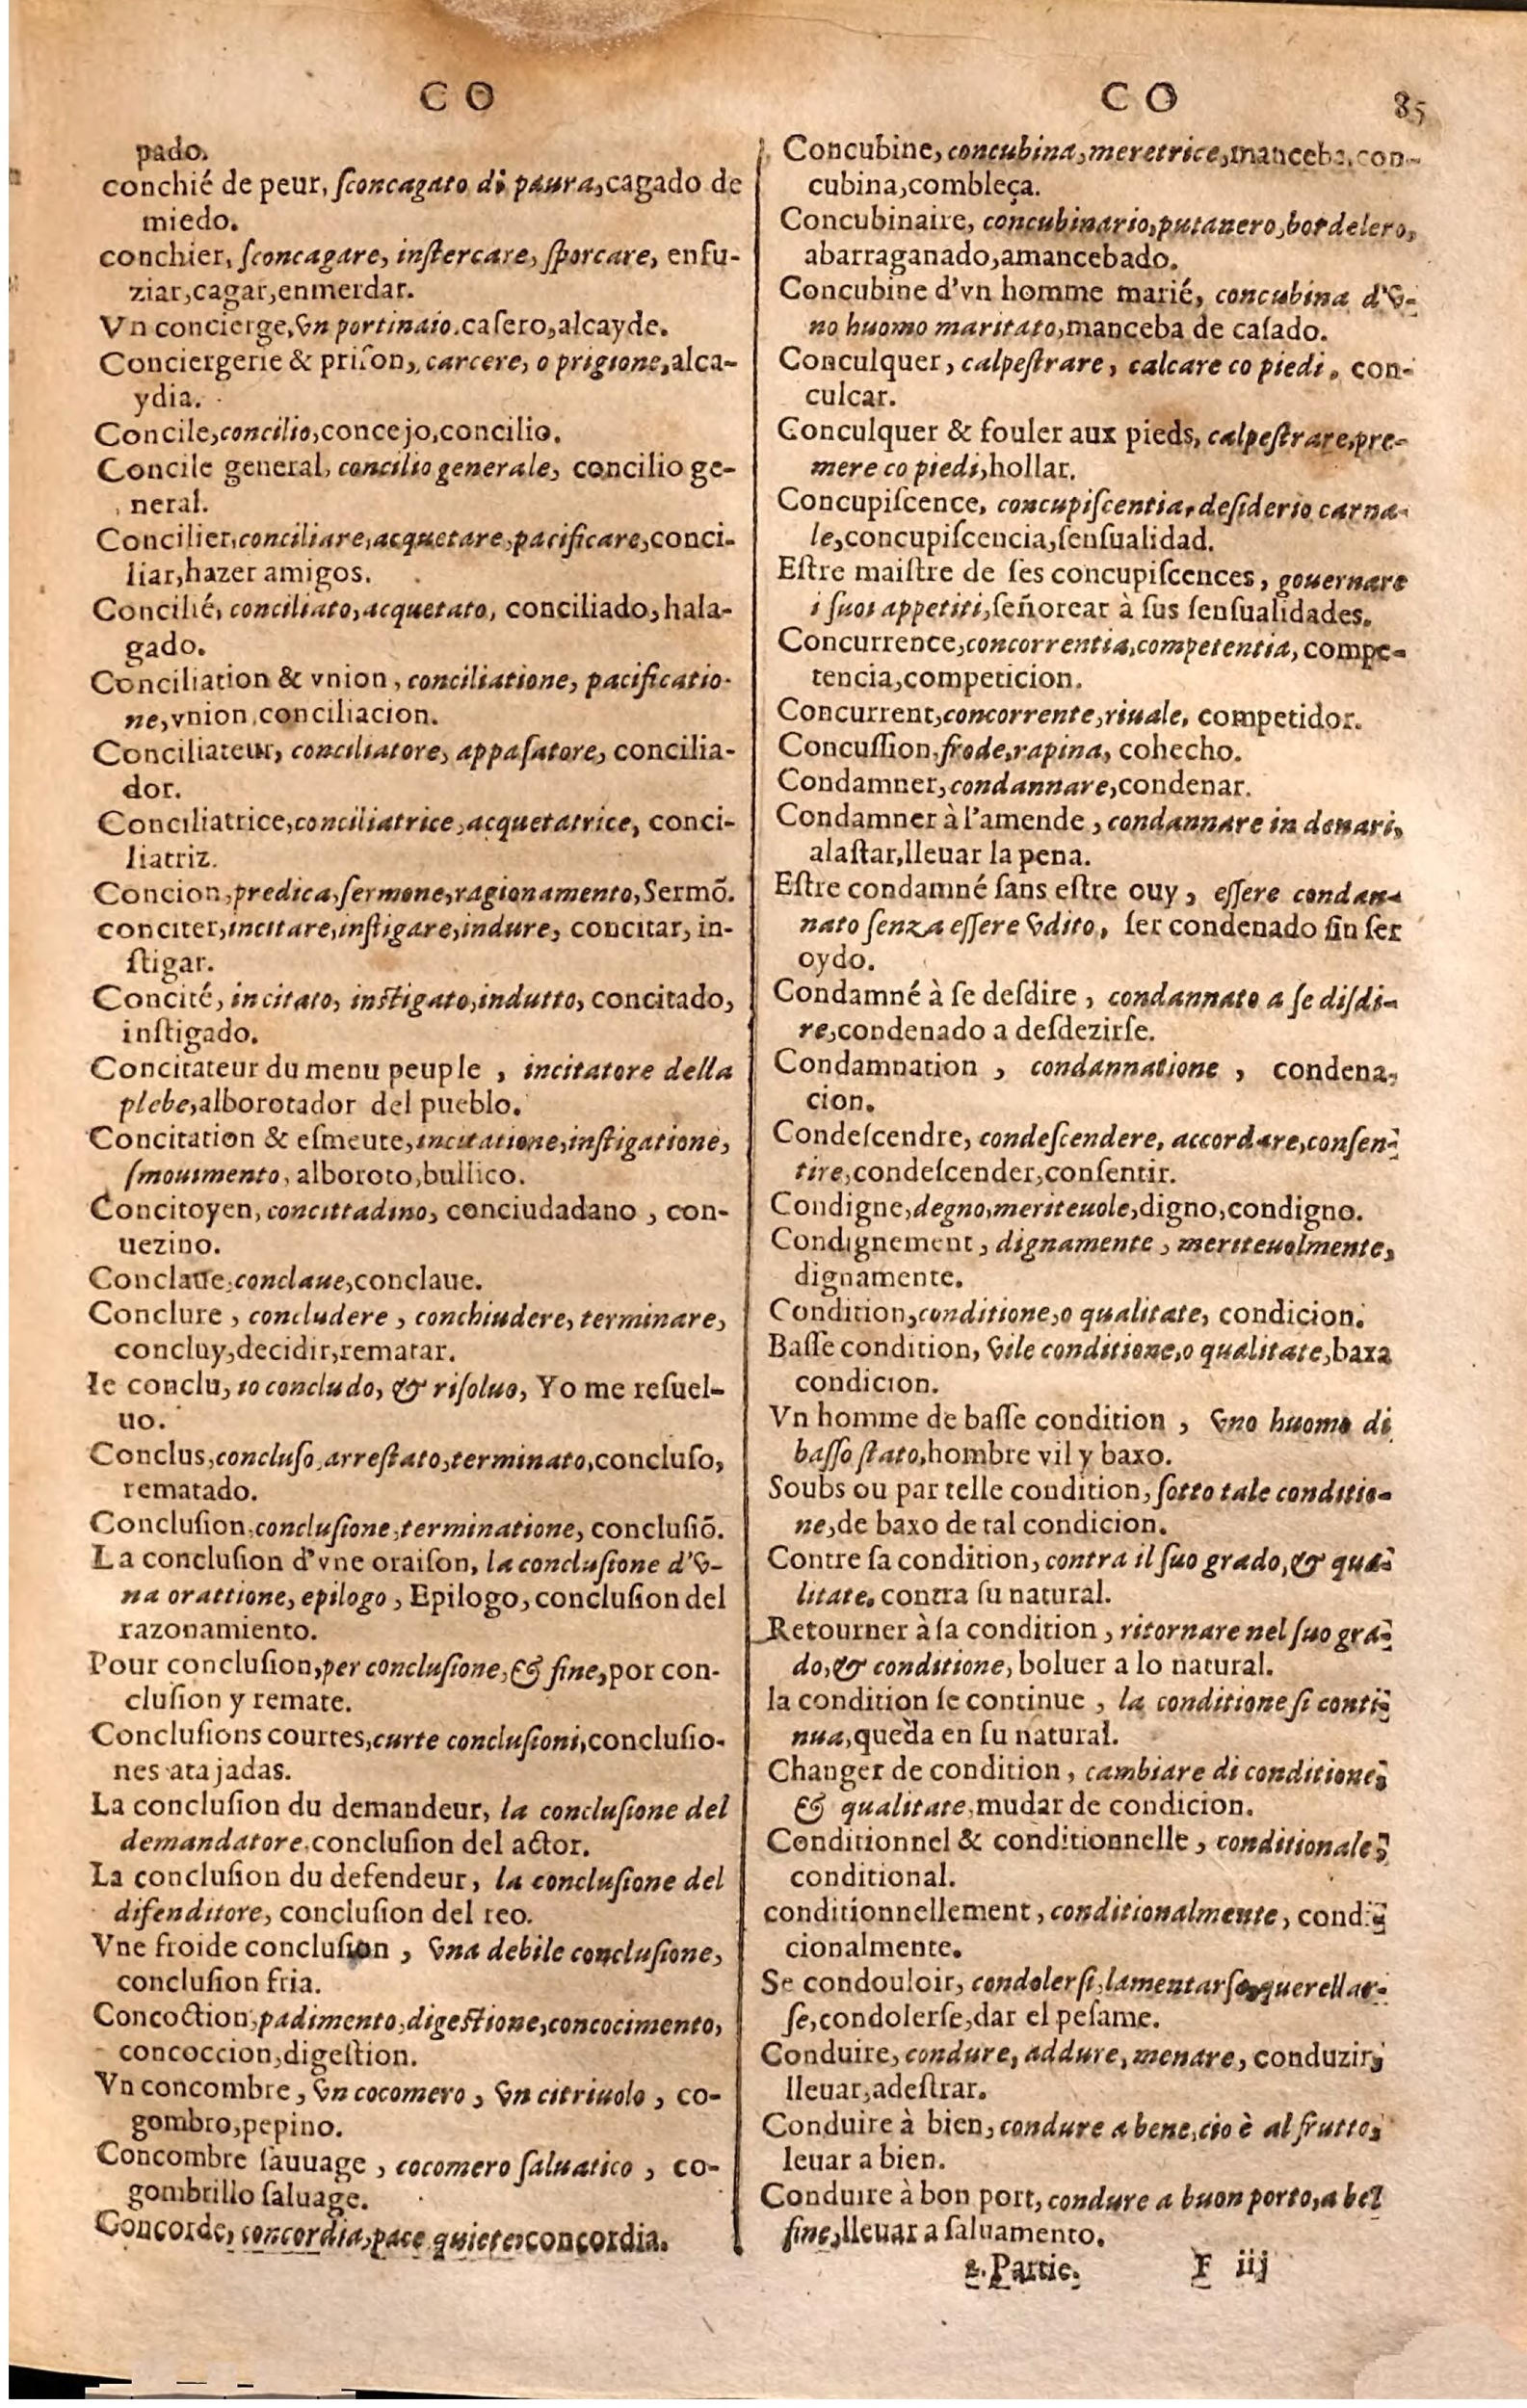 CO
CO
85
pado.
conchié de peur, ſconcagato di paura, cagado de
miedo.
conchier, ſconcagare, inſtercare, ſporcare, enſu-
ziar, cagar, enmerdar.
Vn concierge, vn portinaio. caſero, alcayde.
Conciergerie & priſon, carcere, o prigione, alca-
ydia.
Concile, concilio, concejo, concilio.
Concile general, concilio generale, concilio ge-
neral.
Concilier, conciliare, acquetare, pacificare, conci-
liar, hazer amigos.
Concilié, conciliato, acquetato, conciliado, hala-
gado.
Conciliation & vnion, conciliatione, pacificatio-
ne, vnion, conciliacion.
Conciliateur, conciliatore, appaſatore, concilia-
dor.
Conciliatrice, conciliatrice, acquetatrice, conci-
liatriz.
Concion, predica, ſermone, ragionamento, Sermõ.
conciter, incitare, inſtigare, indure, concitar, in-
ſtigar.
Concité, incitato, inſtigato, indutto, concitado,
inſtigado.
Concitateur du menu peuple, incitatore della
plebe, alborotador del pueblo.
Concitation & eſmeute, incitatione, inſtigatione,
ſmouimento, alboroto, bullico.
Concitoyen, concittadino, conciudadano, con-
uezino.
Conclaue, conclaue, conclaue.
Conclure, concludere, conchiudere, terminare,
concluy, decidir, rematar.
Ie conclu, io concludo, & riſoluo, Yo me reſuel-
uo.
Conclus, concluſo, arreſtato, terminato, concluſo,
rematado.
Concluſion, concluſione, terminatione, concluſiõ.
La concluſion d'vne oraiſon, la concluſione d'v-
na orattione, epilogo, Epilogo, concluſion del
razonamiento.
Pour concluſion, per concluſione, & fine, por con-
cluſion y remate.
Concluſions courtes, curte concluſioni, concluſio-
nes atajadas.
La concluſion du demandeur, la concluſione del
demandatore, concluſion del actor.
La concluſion du defendeur, la concluſione del
difenditore, concluſion del reo.
Vne froide concluſion, vna debile concluſione,
concluſion fria.
Concoction, padimento, digeſtione, concocimento,
concoccion, digeſtion.
Vn concombre, vn cocomero, vn citriuolo, co-
gombro, pepino.
Concombre ſauuage, cocomero ſaluatico, co-
gombrillo ſaluage.
Concorde, concordia, pace, quiete, concordia.
Concubine, concubina, meretrice, manceba, con-
cubina, combleça.
Concubinaire, concubinario, putanero, bordelero,
abarraganado, amancebado.
Concubine d'vn homme marié, concubina d'v-
no huomo maritato, manceba de caſado.
Conculquer, calpeſtrare, calcare co piedi, con-
culcar.
Conculquer & fouler aux pieds, calpeſtrare, pre-
mere co piedi, hollar.
Concupiſcence, concupiſcentia, deſiderio carna-
le, concupiſcencia, ſenſualidad.
Eſtre maiſtre de ſes concupiſcences, gouernare
i ſuoi appetiti, ſeñorear à ſus ſenſualidades.
Concurrence, concorrentia, competentia, compe-
tencia, competicion.
Concurrent, concorrente, riuale, competidor.
Concuſſion, frode, rapina, cohecho.
Condamner, condannare, condenar.
Condamner à l'amende, condannare in denari,
alaſtar, lleuar la pena.
Eſtre condamné ſans eſtre ouy, eſſere condan-
nato ſenza eſſere vdito, ſer condenado ſin ſer
oydo.
Condamné à ſe deſdire, condannato a ſe diſdi-
re, condenado a deſdezirſe.
Condamnation, condannatione, condena-
cion.
Condeſcendre, condeſcendere, accordare, conſen-
tire, condeſcender, conſentir.
Condigne, degno, meriteuole, digno, condigno.
Condignement, dignamente, meriteuolmente,
dignamente.
Condition, conditione, o qualitate, condicion.
Baſſe condition, vile conditione, o qualitate, baxa
condicion.
Vn homme de baſſe condition, vno huomo di
baſſo ſtato, hombre vil y baxo.
Soubs ou par telle condition, ſotto tale conditio-
ne, de baxo de tal condicion.
Contre ſa condition, contra il ſuo grado, & qua-
litate, contra ſu natural.
Retourner à ſa condition, ritornare nel ſuo gra-
do, & conditione, boluer a lo natural.
la condition ſe continue, la conditione ſi conti-
nua, queda en ſu natural.
Changer de condition, cambiare di conditione,
& qualitate, mudar de condicion.
Conditionnel & conditionnelle, conditionale,
conditional.
conditionnellement, conditionalmente, condi-
cionalmente.
Se condouloir, condolerſi, lamentarſe, querellar-
ſe, condolerſe, dar el peſame.
Conduire, condure, addure, menare, conduzir,
lleuar, adeſtrar.
Conduire à bien, condure a bene, cio è al frutto,
leuar a bien.
Conduire à bon port, condure a buon porto, a bel
fine, lleuar a ſaluamento.
2. Partie. F iij